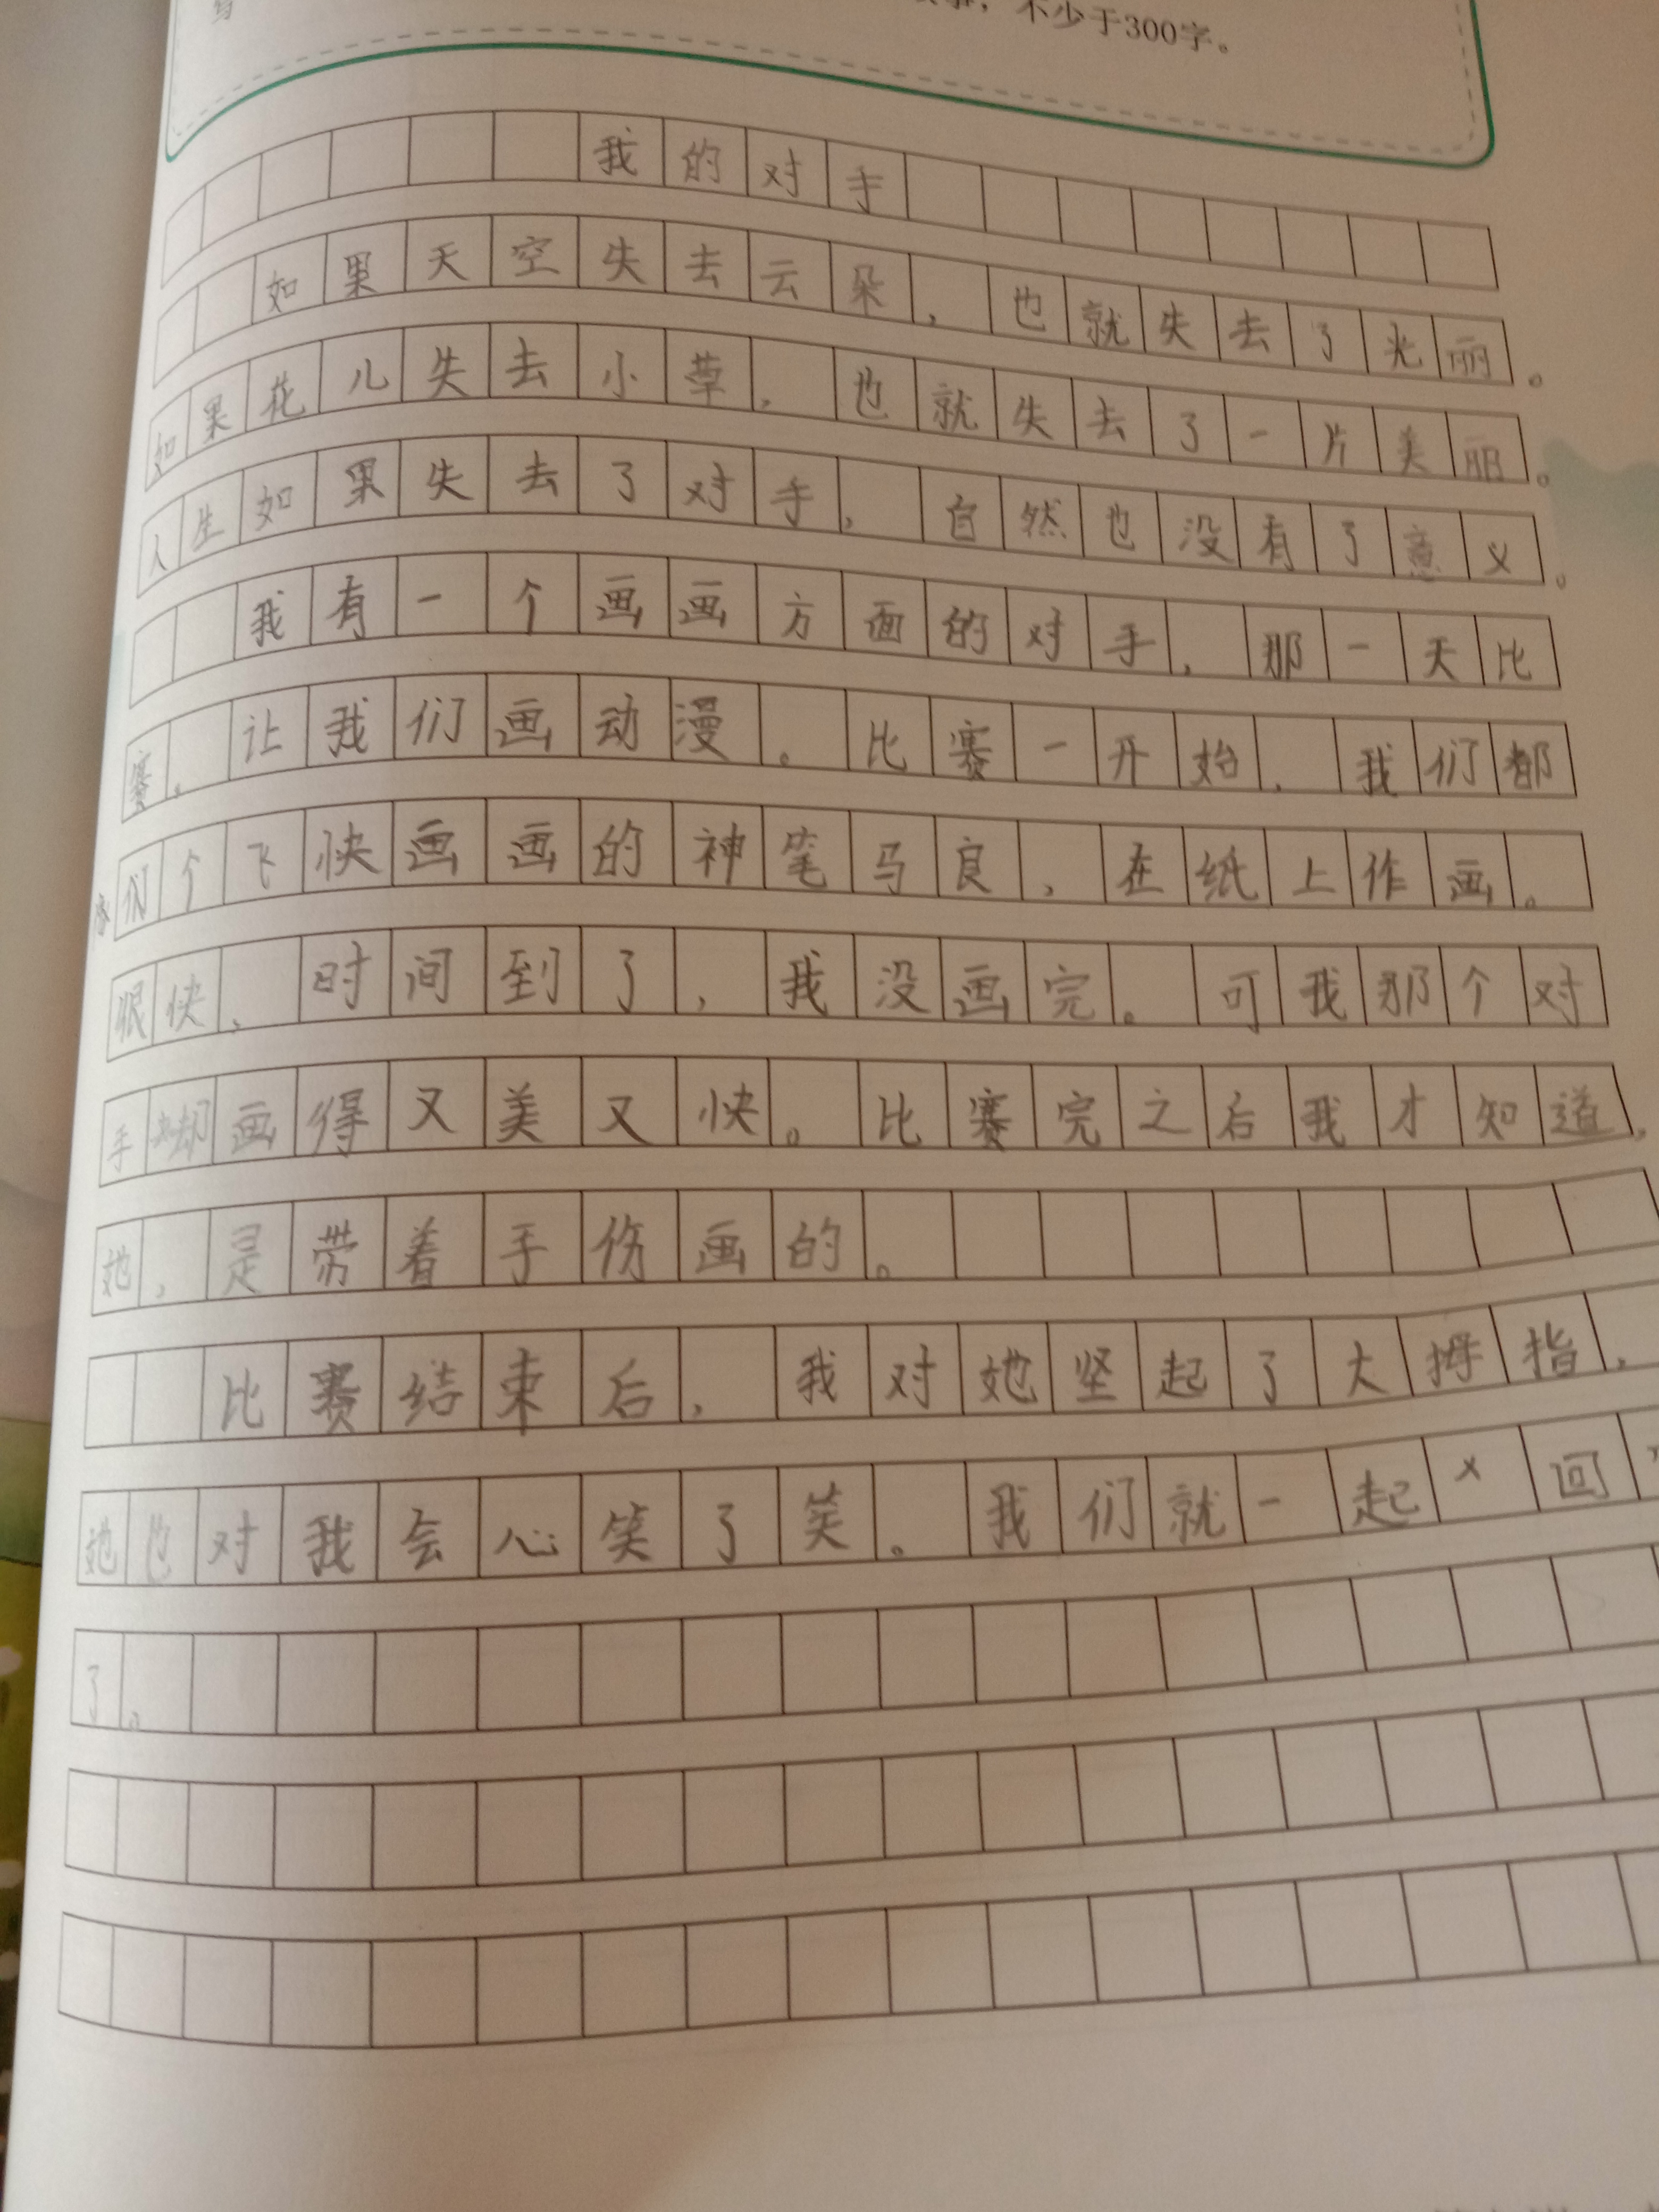 不少于300字。
我的对手
如果天空失去云朵，也就失去了光丽。
如果花儿失去小草，也就失去了一片美丽。
人生如果失去了对手，自然也没有了意义。
我有一个画画方面的对手，那一天比
赛，让我们画动漫。比赛一开始，我们都
像个飞快画画的神笔马良，在纸上作画。
很快，时间到了，我没画完。可我那个对
手却画得又美又快。比赛完之后我才知道，
她，是带着手伤画的。
比赛结束后，我对她坚起了大拇指，
她也对我会心笑了笑。我们就一起回
了。